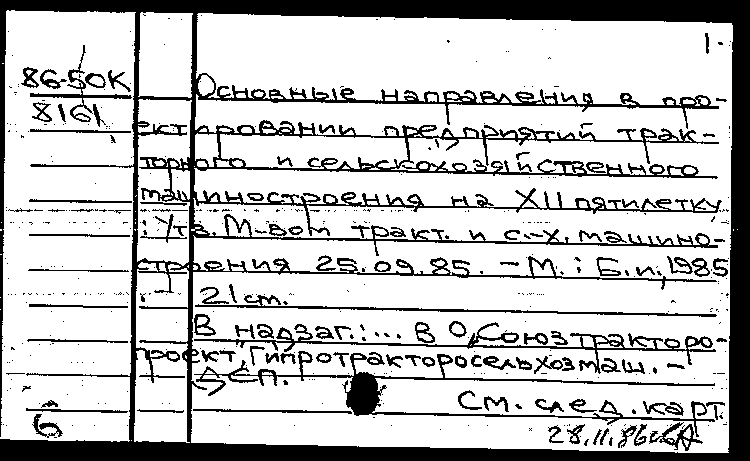 1.
86-50К
8161
Основные направления в про-
ектировании предприятий трак-
торного и сельскохозяйственного
машиностроения на XII пятилетку
: Утв. М-вом тракт. и с.-х. машино-
строения 25.09.85. - М. : Б.и., 1985
. 21 см.
В надзаг.: ... В О "Союзтракторо-
проект", Гипротракторосельхозмаш. -
ДСП.
См. след. карт.
6
28.11.86